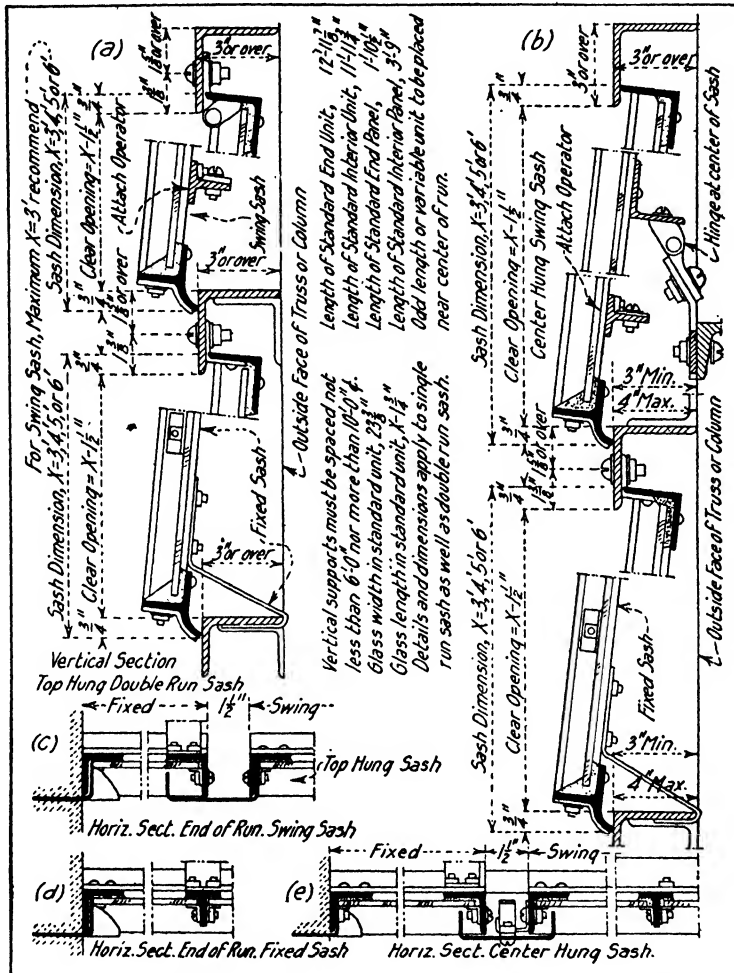 (a)
3" or over
1 1/8"
5/8" or over
3/4"
For Swing Sash, Maximum X=3' recommend
Sash Dimension, X=3', 4', 5' or 6'
Clear Opening = X-1 1/2"
Attach Operator
Swing Sash
3" or over
3/4"
1 1/8" or over
1 3/8"
3/4"
Sash Dimension, X=3', 4', 5' or 6'
Clear Opening = X-1 1/2"
Fixed Sash
3" or over
3/4"
Outside Face of Truss or Column
Vertical Section
Top Hung Double Run Sash
Length of Standard End Unit,
Length of Standard Interior Unit,
Length of Standard End Panel, 1'-10 1/2"
Length of Standard Interior Panel, 3'-9"
Odd length or variable unit to be placed
near center of run.
Vertical supports must be spaced not
less than 6'-0" nor more than 10'-0"
Glass width in standard unit, 23 3/8"
Glass length in standard unit, X-1 3/4"
Details and dimensions apply to single
run sash as well as double run sash.
(b)
3" or over
3" or over
3/4"
Sash Dimension, X=3', 4', 5' or 6'
Clear Opening = X-1 1/2"
Center Hung Swing Sash
Attach Operator
Hinge at center of Sash
3" Min.
4" Max.
3/4"
3/4"
Sash Dimension, X=3', 4', 5' or 6'
Clear Opening = X-1 1/2"
Fixed Sash
3" Min.
4" Max.
3/4"
Outside Face of Truss or Column
(c)
Fixed 1 1/2" Swing
Top Hung Sash
Horiz. Sect. End of Run. Swing Sash
(d)
Horiz. Sect. End of Run. Fixed Sash
(e)
Fixed 1 1/2" Swing
Horiz. Sect. Center Hung Sash.